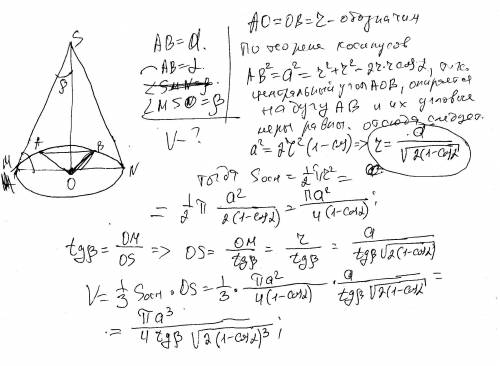 S
β
M
A
B
O
N
AB = a
⌒AB = α
∠SMN = β
∠MSO = β
V - ?
AO = OB = r - обозначим
По теореме косинусов
AB² = a² = r² + r² - 2r·r cosα, т.к.
центральный угол AOB, опирается
на дугу AB и их угловые
меры равны. отсюда следует
a² = 2r²(1 - cosα) => r = a/√(2(1-cosα))
тогда Sосн = 1/2 πr² =
= 1/2 π a²/(2(1-cosα)) = πa²/(4(1-cosα));
tgβ = OM/OS => OS = OM/tgβ = r/tgβ = a/(tgβ√(2(1-cosα)))
V = 1/3 Sосн · OS = 1/3 · πa²/(4(1-cosα)) · a/(tgβ√(2(1-cosα))) =
= πa³/(4 tgβ √(2(1-cosα)³));